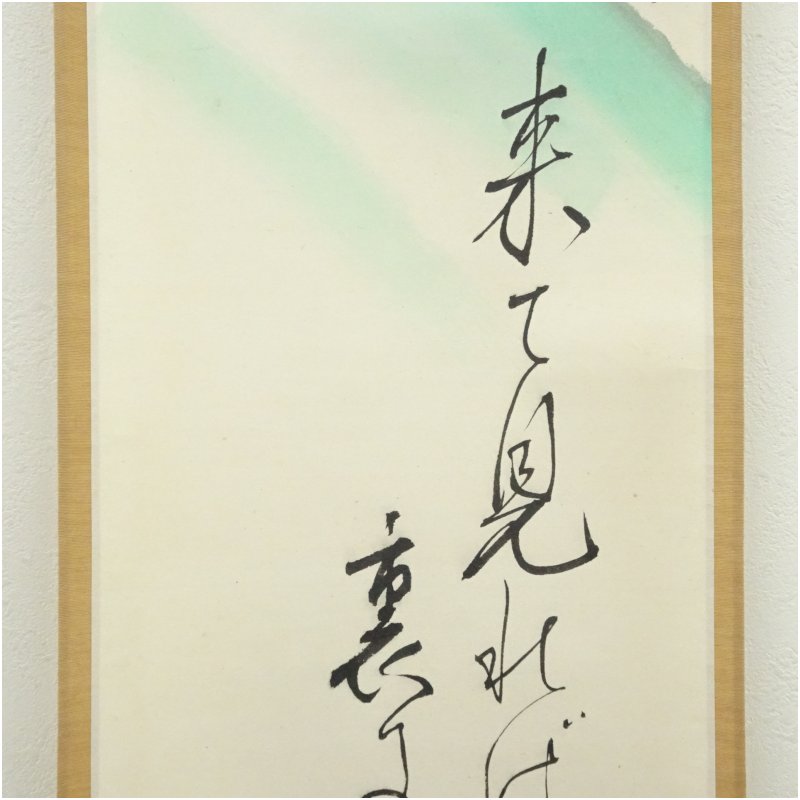 来て見れば
裏